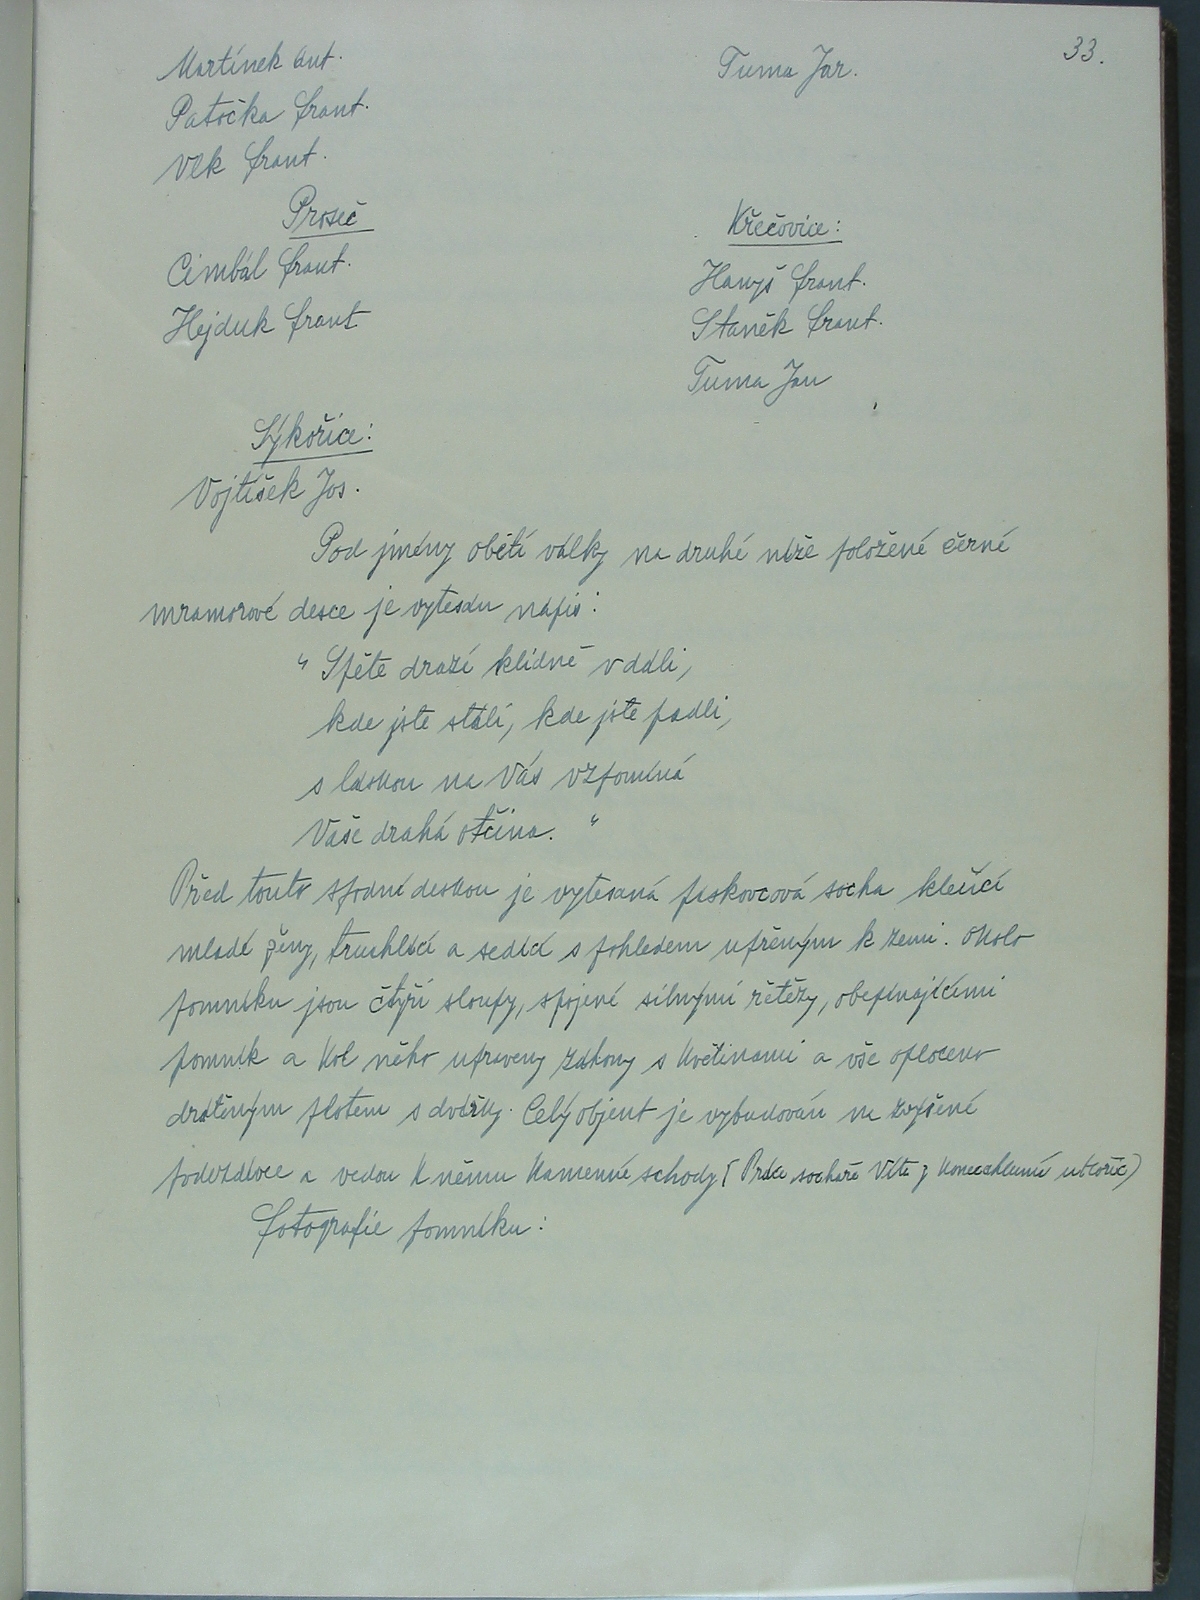 33.
Martínek Ant.
Patočka Frant.
Vlk Frant.
Tuma Jar.
Proseč
Cimbál Frant.
Hejduk Frant
Křečovice:
Hanyš Frant.
Staněk Frant.
Tuma Jan
Sýkořice:
Vojtíšek Jos.
Pod jmény obětí války na druhé níže položené černé
mramorové desce je vytesán nápis:
"Spěte drazí klidně v dáli,
kde jste stáli, kde jste padli,
s láskou na Vás vzpomíná
Vaše drahá otčina."
Před touto spodní deskou je vytesaná pískovcová socha klečící
mladé ženy, truchlící a sedící s pohledem upřeným k zemi. Okolo
pomníku jsou čtyři sloupy, spojené silnými řetězy, obepínajícími
pomník a kol něho upraveny záhony s květinami a vše oploceno
drátěným plotem s dvířky. Celý objekt je vybudován na zvýšené
podezdívce a vedou k němu kamenné schody (Práce sochaře Víta z Konecchlumí u Hořic)
Fotografie pomníku: